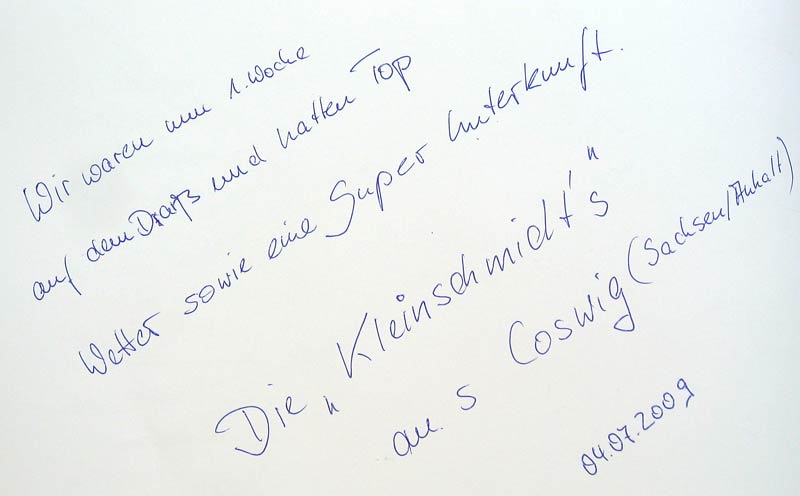 Wir waren nun 1. Woche
auf dem Darß und hatten Top
Wetter sowie eine Super Unterkunft.
Die „Kleinschmidt's“
aus Coswig (Sachsen/Anhalt)
04.07.2009